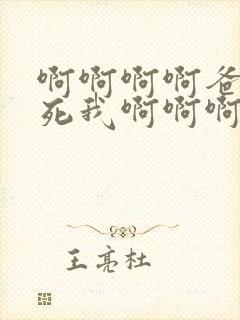 啊啊啊啊爸
死我啊啊啊
王亮杜